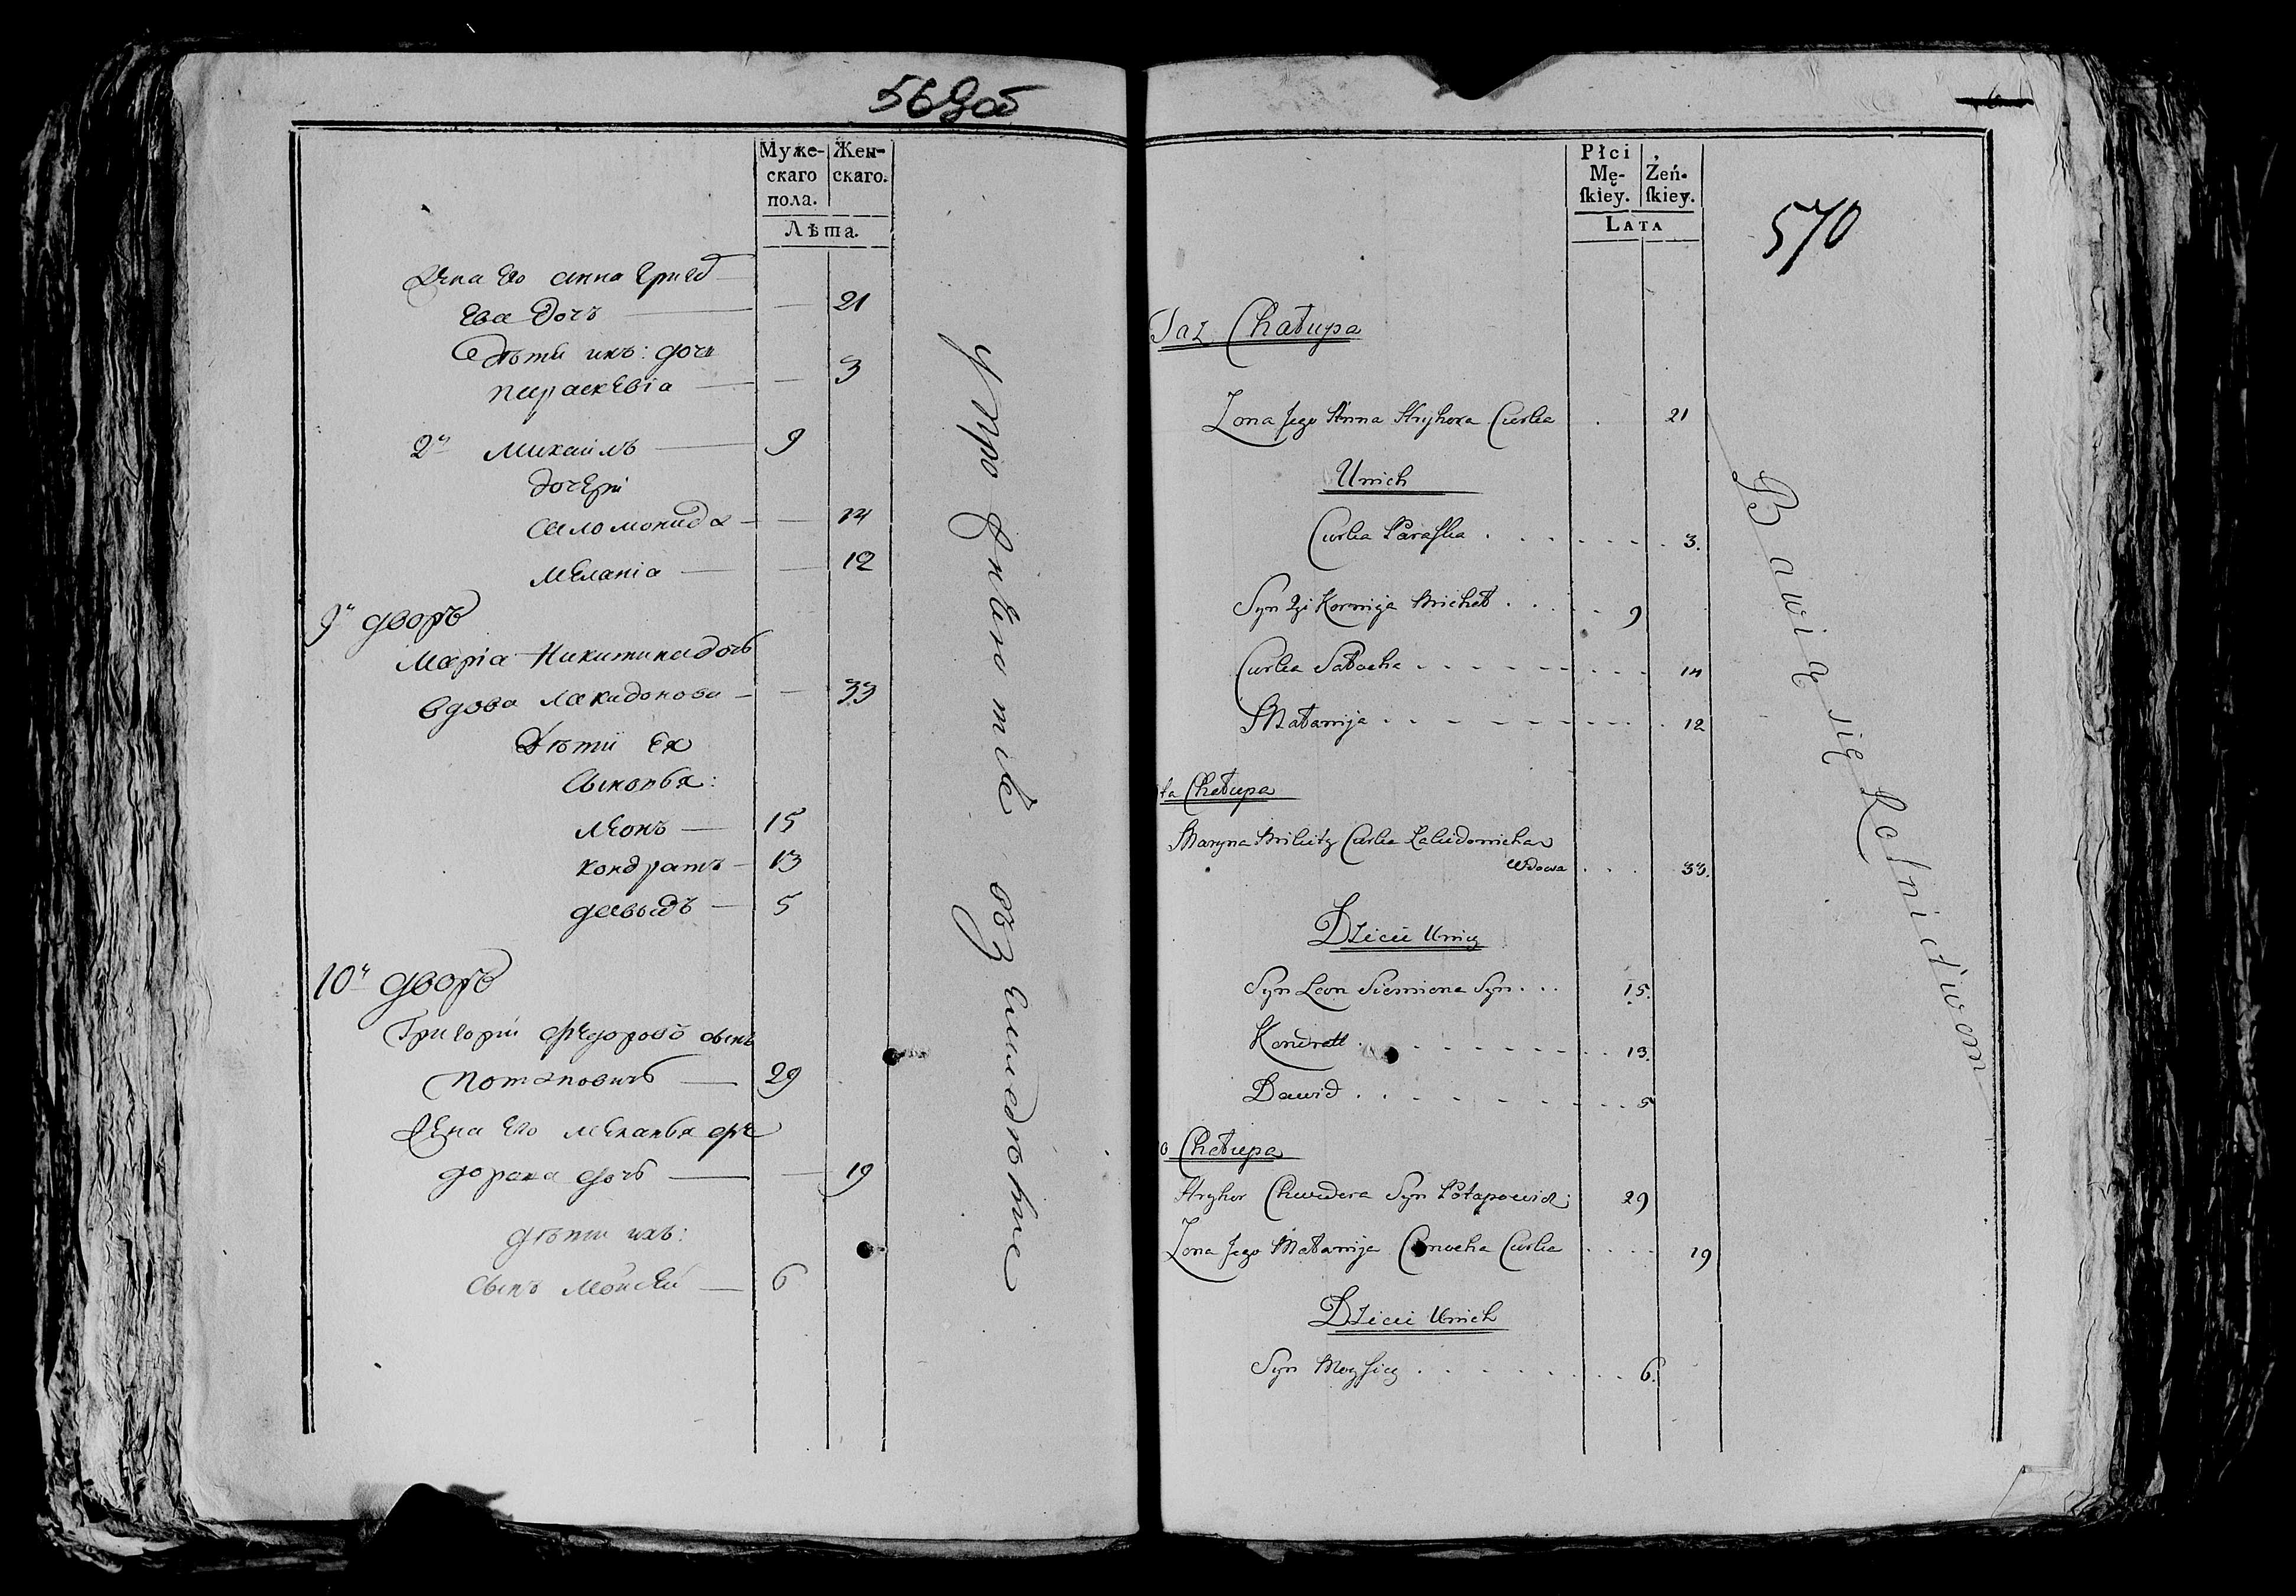 569 об
Муже-
скаго
пола.
Жен-
скаго.
Лѣта.
Жена его Анна Григо
ева дочь — — 21
Дѣти ихъ: дочь
Параскевiа — — 3
2й Михаилъ — 9
дочери
Саломонида — — 14
Меланiа — — 12
9й дворъ
Марiа Никитина дочь
вдова Лакидонова — — 33
Дѣти Ея
Сыновья:
Леонъ — 15
Кондратъ — 13
Давыдъ — 5
10й дворъ
Григорiй Федоровъ сынъ
Потаповичъ — 29
Жена Его Меланья Фе
дорова дочь — — 19
дѣти ихъ:
Сынъ Мойсей — 6
Упро жняютсѣ
земледѣлие
570
Płci
Mę-
ſkiey.
Żeń-
ſkiey.
LATA
Taż Chałupa
Żona Jego Anna Hryhora Curka . 21
U nich
Curka Paraſka . . . . . . . 3.
Syn 2gi Kornija Michał . . . . . 9
Curka Sałocha . . . . . . . . . 14
Małanija . . . . . . . . . . 12
ta Chałupa
Maryna Mikity Curka Lakidonicha
Wdowa . . . 33.
Dzieci U niey
Syn Leon Siemiona Syn . . . 15.
Kondratt . . . . . . . . . 13.
Dawid . . . . . . . . . 5
Chałupa
Hryhor Chwedera Syn Potapowicz 29
Żona Jego Małanija Curka . . . . 19
Dzieci U nich
Syn Moyſiey . . . . . . . . 6.
Bawią się Rolnictwem